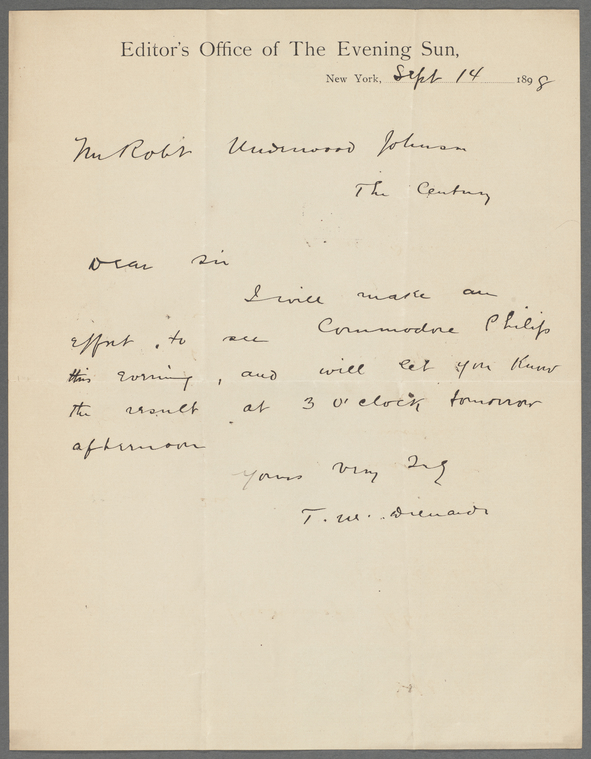 Editor's Office of The Evening Sun,
New York, Sept 14 1898
Mr Robt Underwood Johnson
The Century
Dear Sir
I will make an
effort, to see Commodore Philip
this evening, and will let you know
the result at 3 o'clock tomorrow
afternoon
Yours very
T.